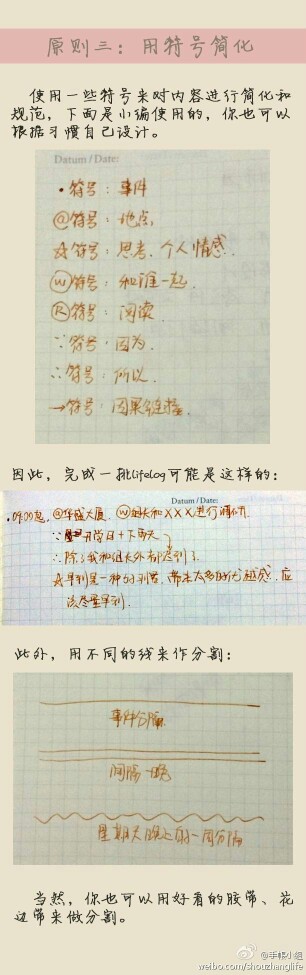 原则三：用符号简化
使用一些符号来对内容进行简化和
规范，下面是小编使用的，你也可以
根据习惯自己设计。
Datum / Date:
·符号：事件
@符号：地点
☆符号：思考、个人情感.
Ⓦ符号：和谁一起.
Ⓡ符号：阅读
∵符号：因为.
∴符号：所以.
→符号：因果链接.
因此，完成一批lifelog可能是这样的：
Datum / Date:
@华盛大厦 Ⓦ组长和XXX进行调研
日+下雨天
∴除了我和组长外都迟到了.
☆早到是一种好习惯，带来太多的优越感，应
该尽量早到.
此外，用不同的线来作分割：
事件分隔
间隔一晚
星期天晚上的一周分隔
当然，你也可以用好看的胶带、花
边带来做分割。
@手帐小组
weibo.com/shouzhanglife